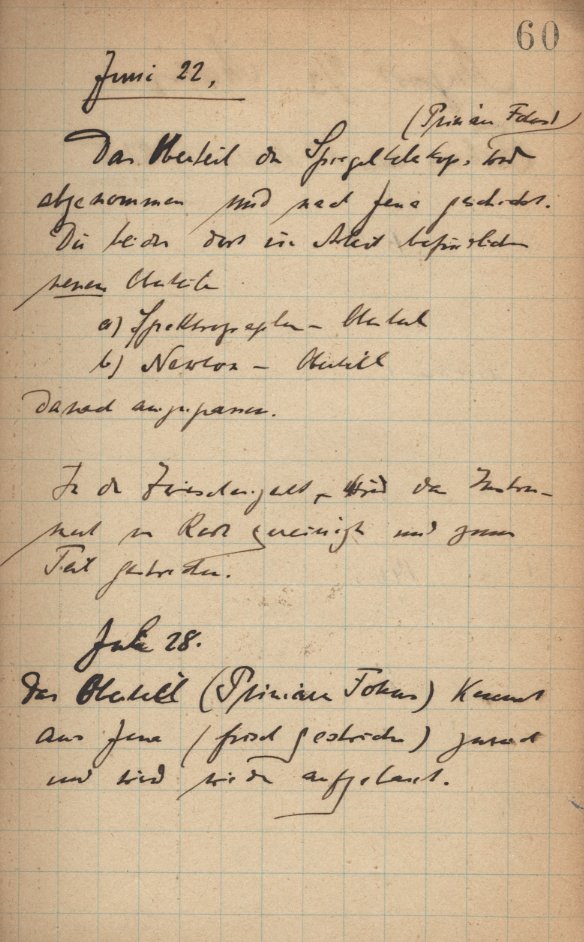 60
Juni 22,
(Primär Fokus)
Das Oberteil des Spiegelteleskops wird
abgenommen und nach Jena geschickt.
Die beiden dort in Arbeit befindlichen
neuen Oberteile
a) Spektrographen - Oberteil
b) Newton - Oberteil
danach anzupassen.
In der Zwischenzeit wird das Instru-
ment von Rost gereinigt und zum
Teil gestrichen.
Juli 28.
Das Oberteil (Primär Fokus) kommt
aus Jena (frisch gestrichen) zurück
und wird wieder aufgebaut.